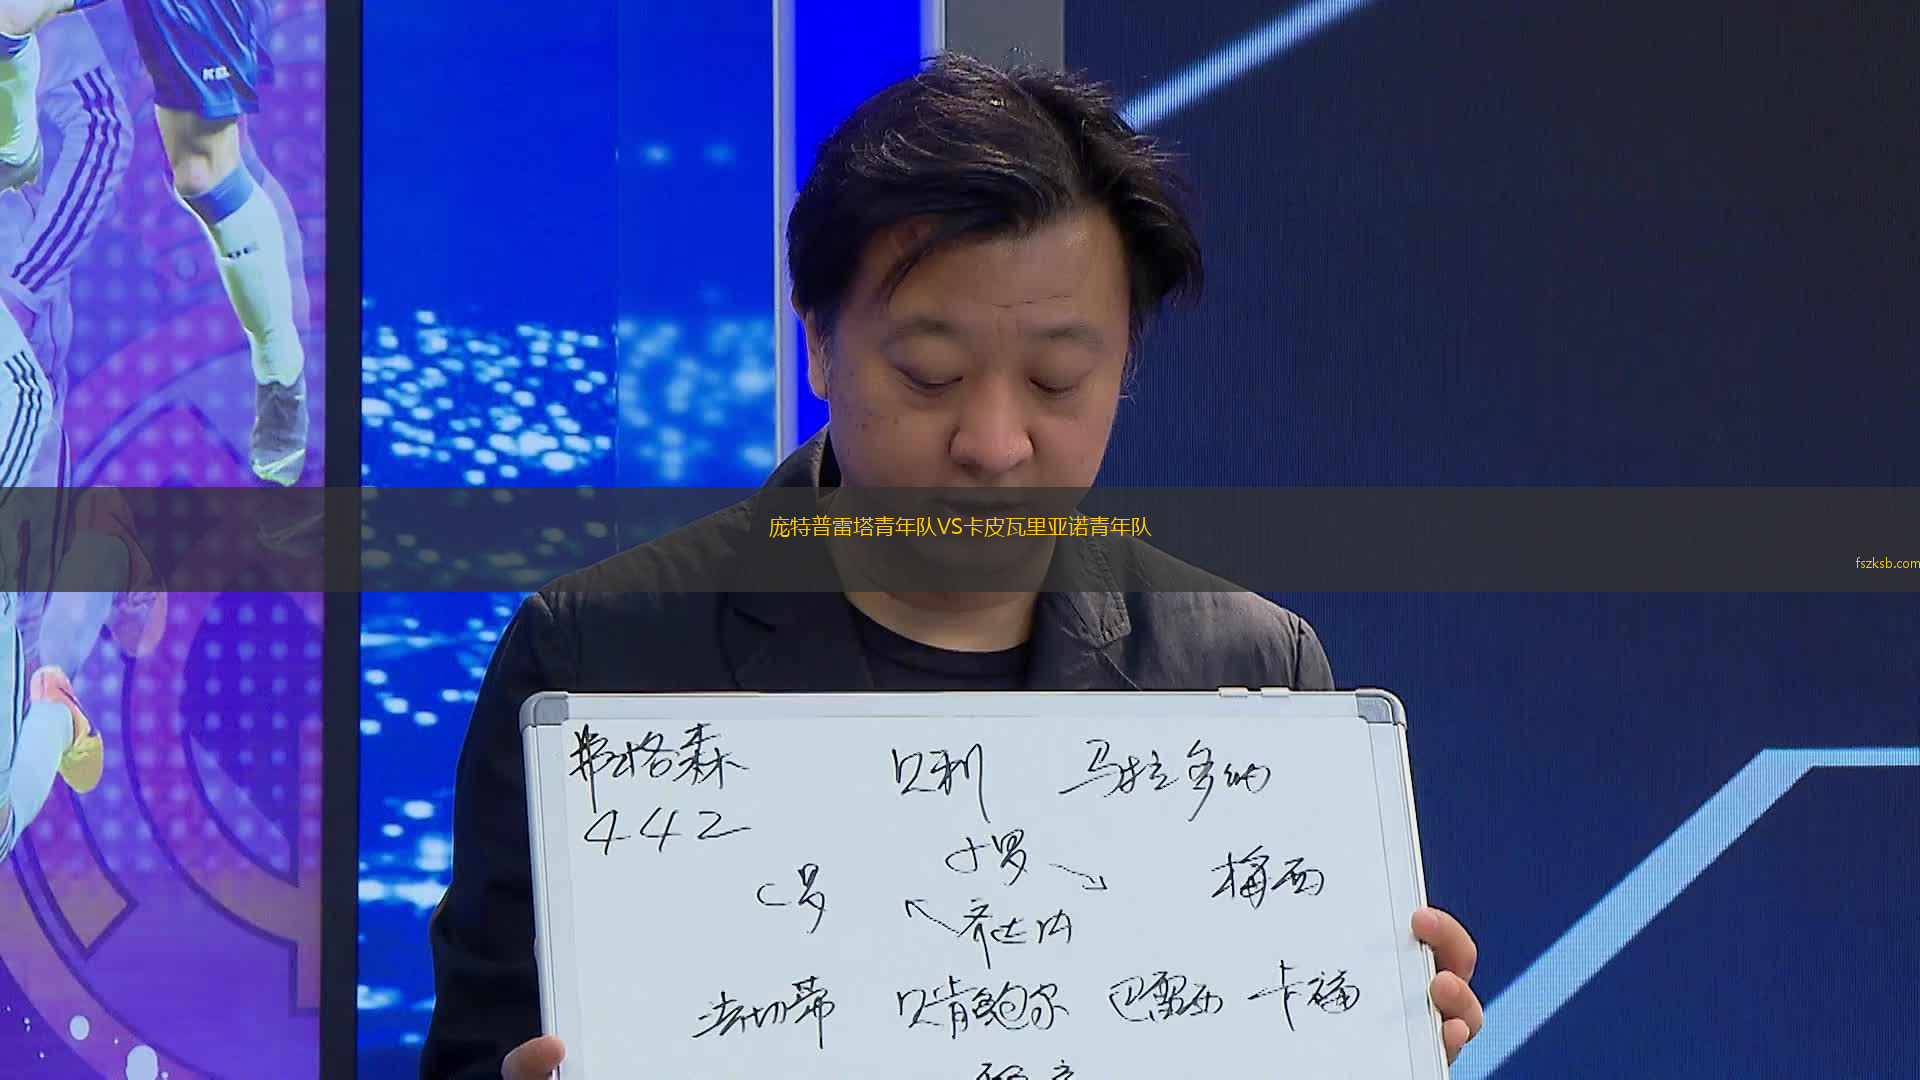 KEL
庞特普雷塔青年队VS卡皮瓦里亚诺青年队
fszksb.com
弗格森 贝利 马拉多纳
442
小罗
C罗 梅西
齐达内
法切蒂 贝肯鲍尔 巴雷西 卡福